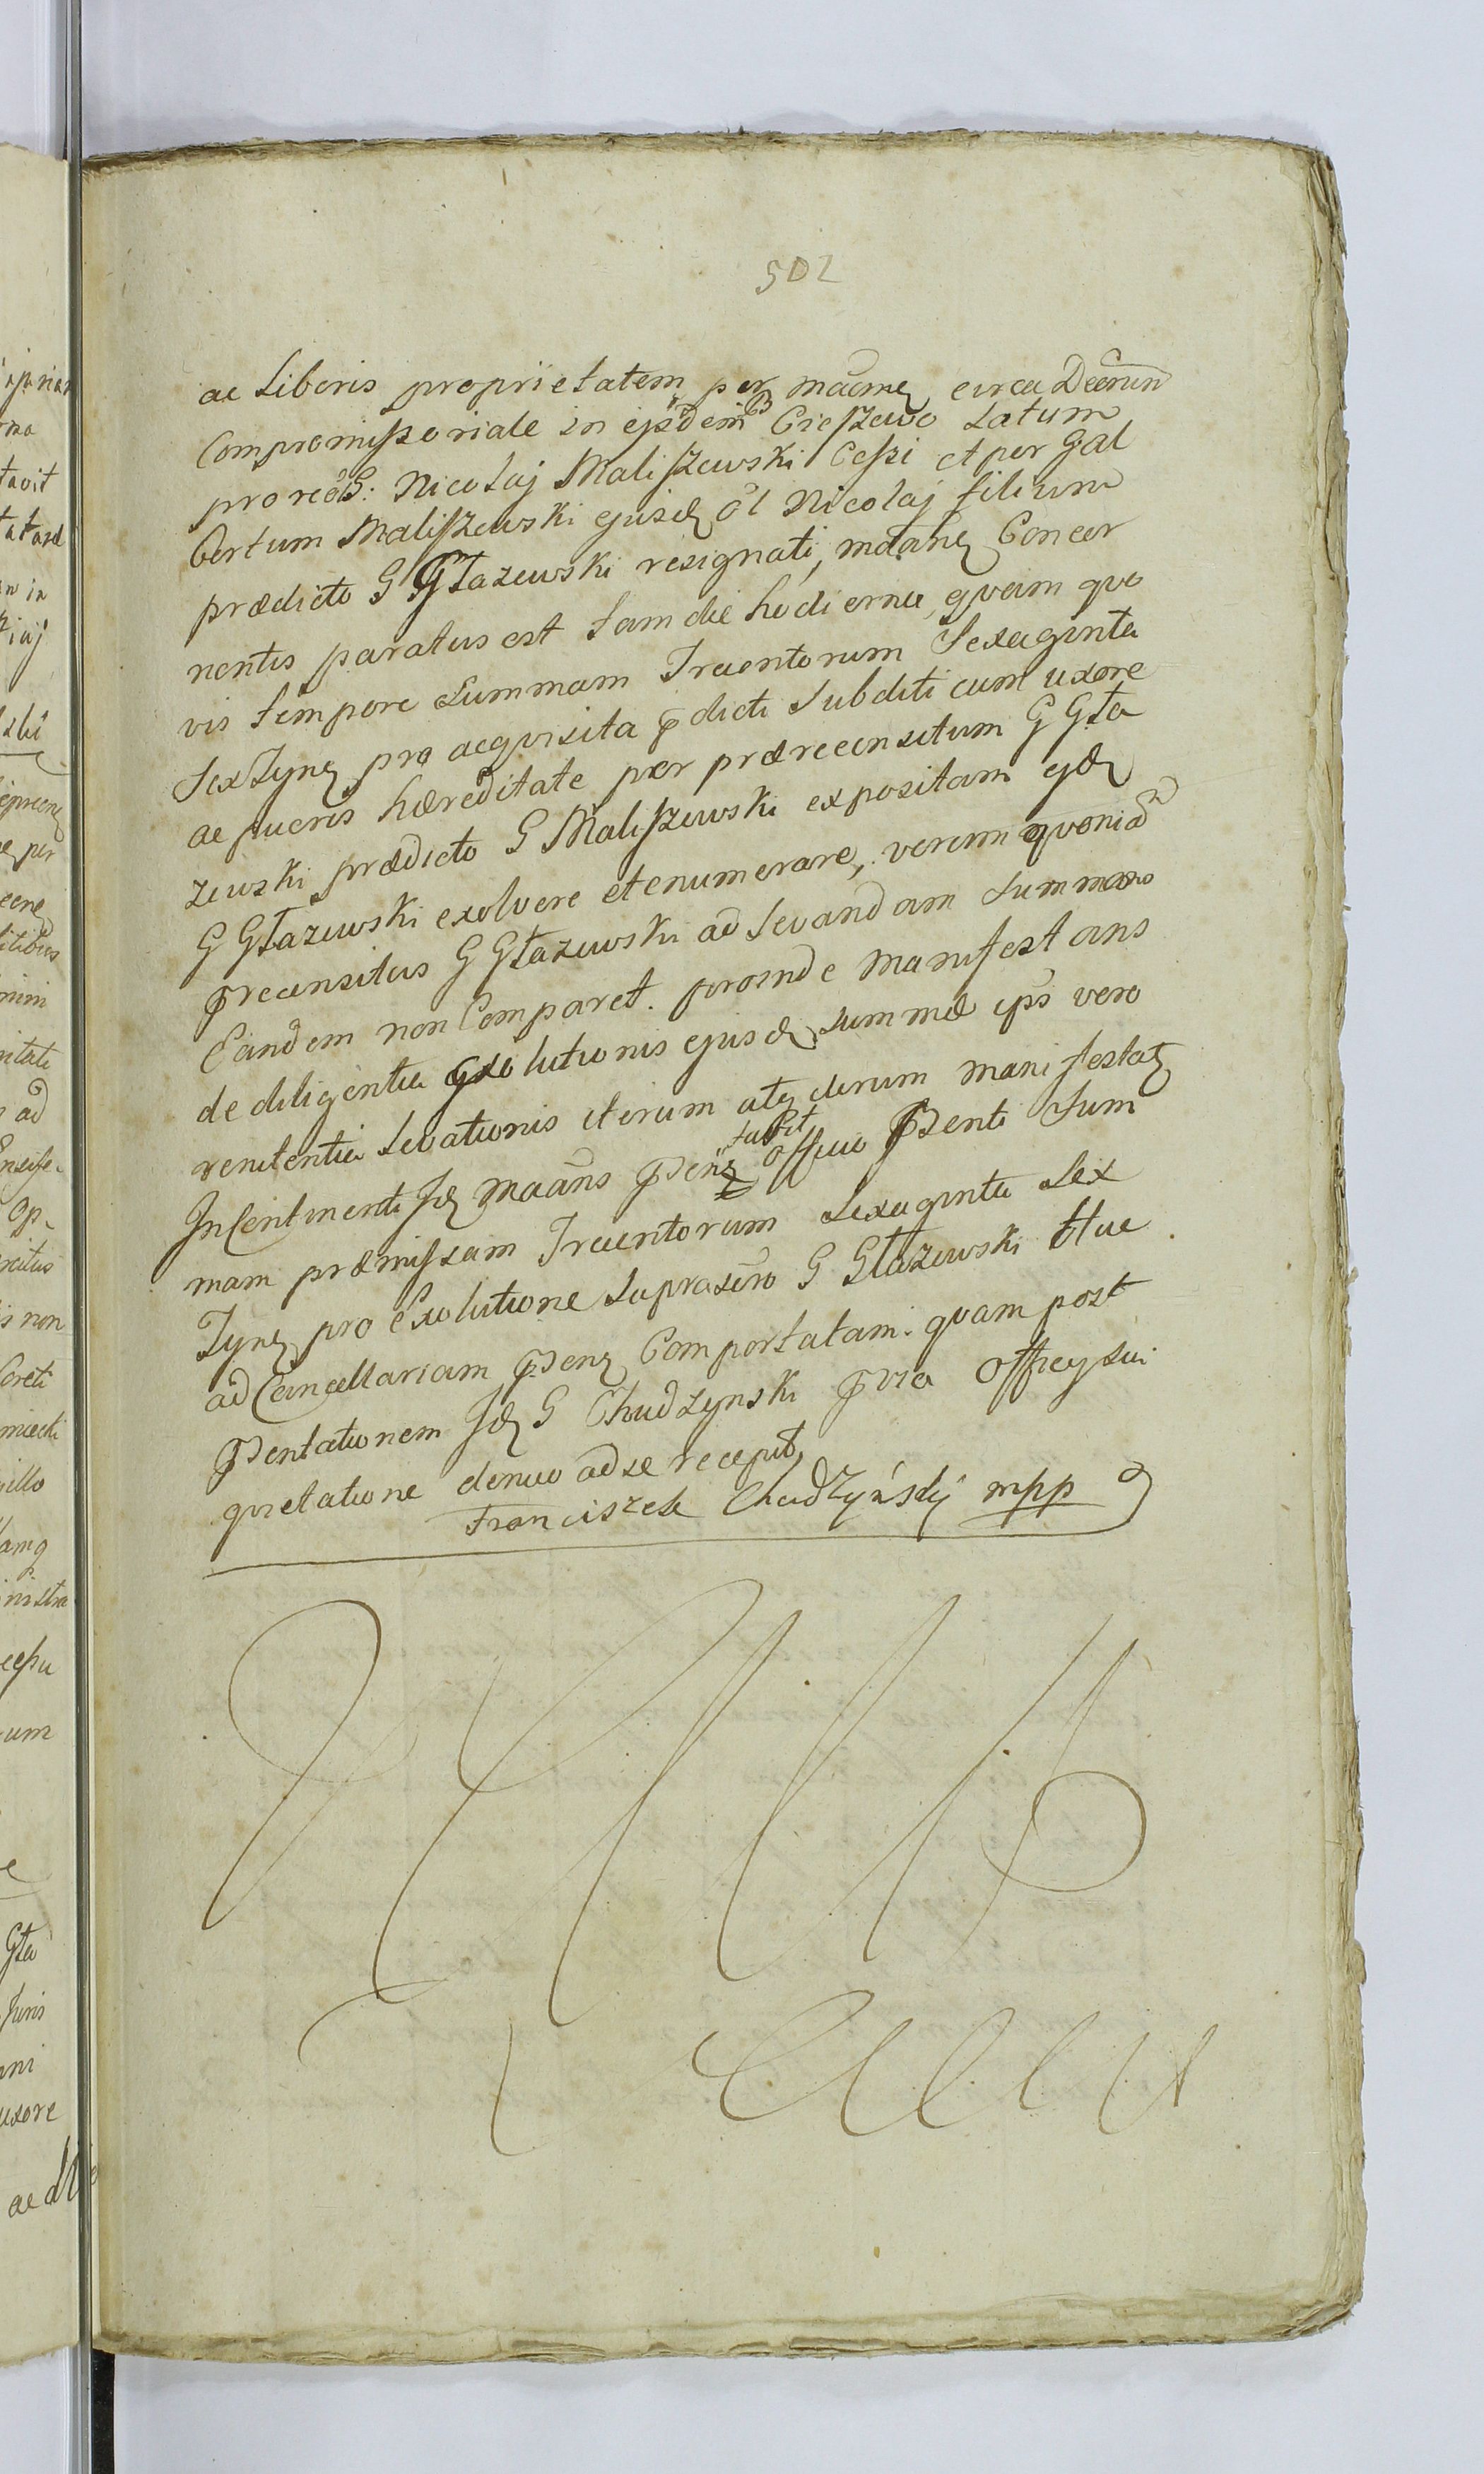 502
ac Liberis proprietatem per macmę circa Decrum
Compromissoriale in ejsdem Cieszewo Latum
pro recog: Nicolaj Maliszewski Cessi et per Gal
bertum Maliszewski ejusd ol Nicolaj filium
prædicto G Głazewski resignati, mdanę Concer
nentis paratus est tam die hodierna, qvam qvo
vis tempore Summam Trecentorum Sexaginta
Sex Tynę pro acqvisita pdicti Subditi cum uxore
ac pueris hæreditate per prærecensitum G Gła
zewski prædicto G Maliszewski expositam ejd
G Głazewski exolvere et enumerare, verum qvoniam
precensitus G Głazewski ad Levandam Summam
Eandem non Comparet. proinde manifestans
de diligentia exolutionis ejusd Summæ ips vero
renitentia Levationis iterum atq iterum manifestatę
In Continenti Jd maans Pdenę Officio Pdenti Sum
mam præmissam Trecentorum Sexaginta Sex
Tynę pro Exolutione Suprascro G Głazewski Huc
ad Cancellariam Pdenę Comportatam. qvam post
Pdentationem Jd G Chudzynski Pvia Officy sui
qvietatione denuo ad se recepit
Franciszek Chudzyński mpp